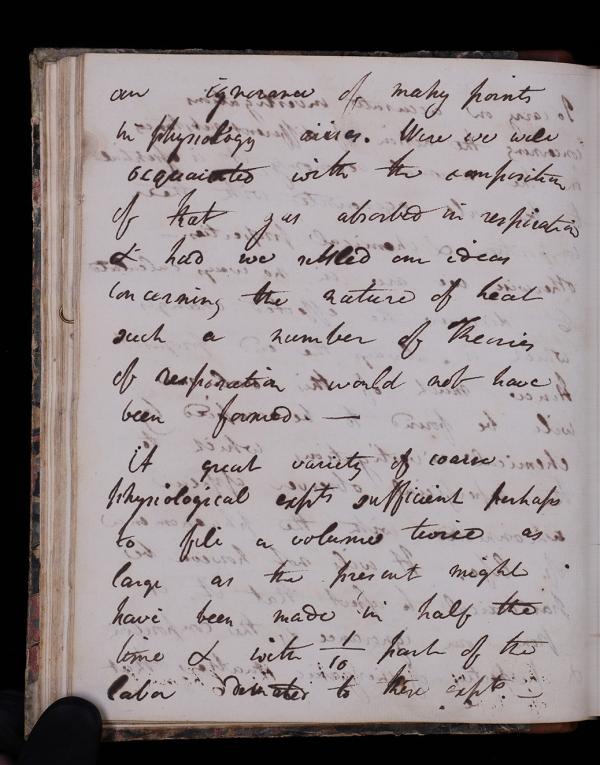 our ignorance of many points
in physiology arises. Were we well
acquainted with the composition
of that gas absorbed in respiration
& had we settled our ideas
concerning the nature of heat
such a number of Theories
of respiration would not have
been formed —
A great variety of coarse
physiological expts sufficient perhaps
to fill a volume twice as
large as the present might
have been made in half the
time & with 1/10 part of the
labor devoted to these expts. —